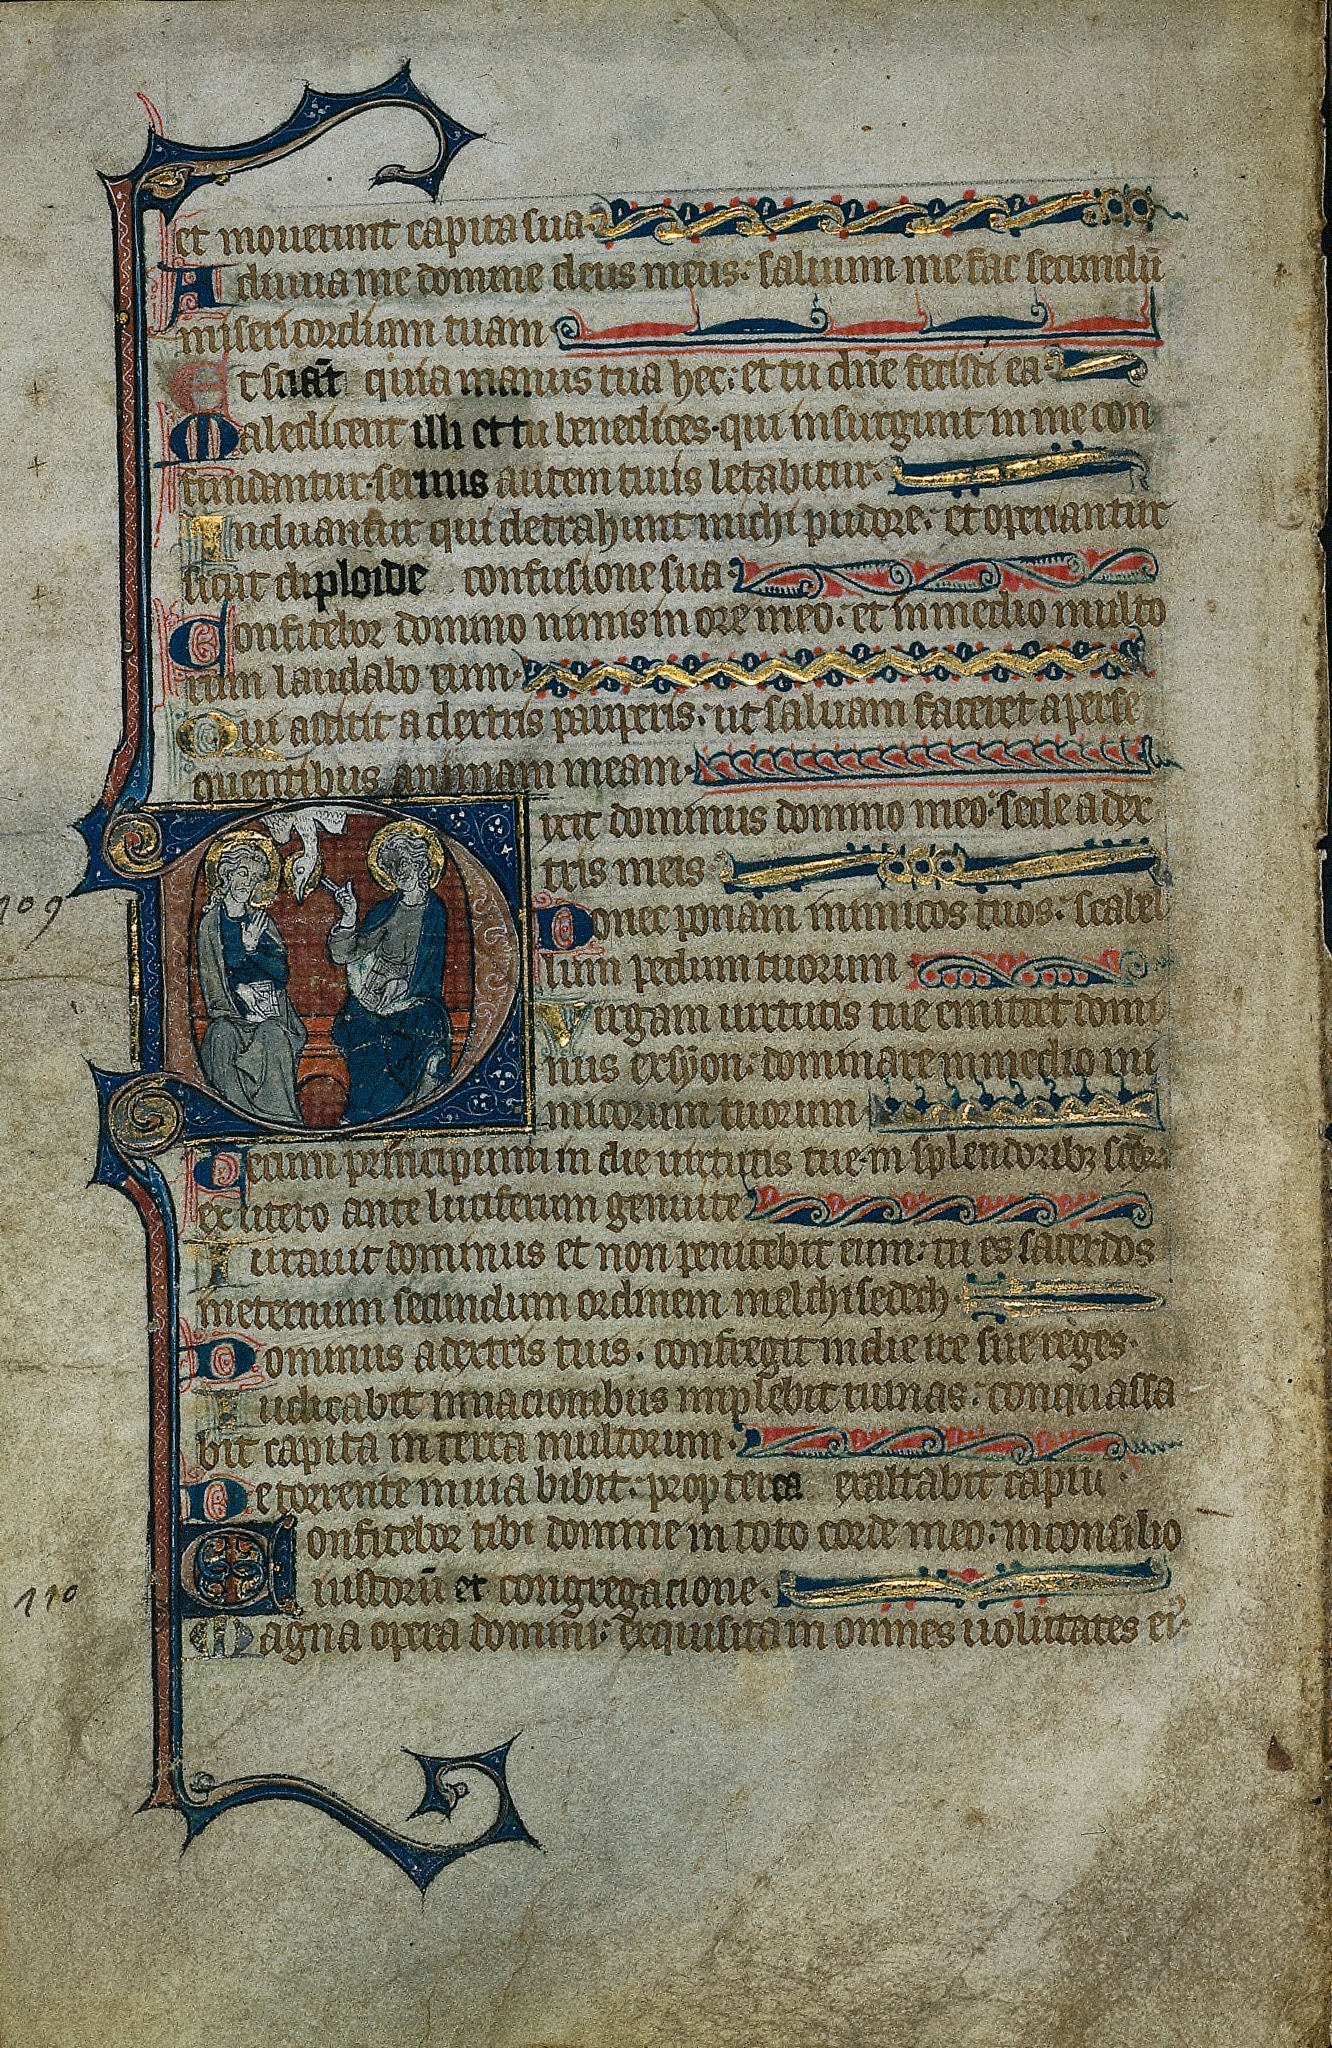 et mouerunt capita sua·
Adiuua me domine deus meus: saluum me fac secundū
misericordiam tuam
Et sciāt quia manus tua hec: et tu dn̄e fecisti ea·
Maledicent illi et tu benedices· qui insurgunt in me con
fundantur· seruus autem tuus letabitur·
Induantur qui detrahunt michi pudore: et operiantur
sicut diploide confusione sua·
Confitebor domino nimis in ore meo: et in medio multo
rum laudabo eum·
Qui astitit a dextris pauperis: ut saluam faceret a perse
quentibus animam meam·
Dixit dominus domino meo· sede a dex
tris meis
109
Donec ponam inimicos tuos: scabel
lum pedum tuorum
Virgam uirtutis tue emittet domi
nus ex syon: dominare in medio ini
micorum tuorum
Tecum principium in die uirtutis tue· in splendoribꝫ sc̄or:
ex utero ante luciferum genui te
Iurauit dominus et non penitebit eum: tu es sacerdos
in eternum secundum ordinem melchisedech
Dominus a dextris tuis· confregit in die ire sue reges·
Iudicabit in nacionibus implebit ruinas: conquassa
bit capita in terra multorum·
De torrente in uia bibit: propterea exaltabit capiū·
Confitebor tibi domine in toto corde meo: in consilio
110
iustorū et congregacione·
Magna opera domini: exquisita in omnes uolūtates ei'·